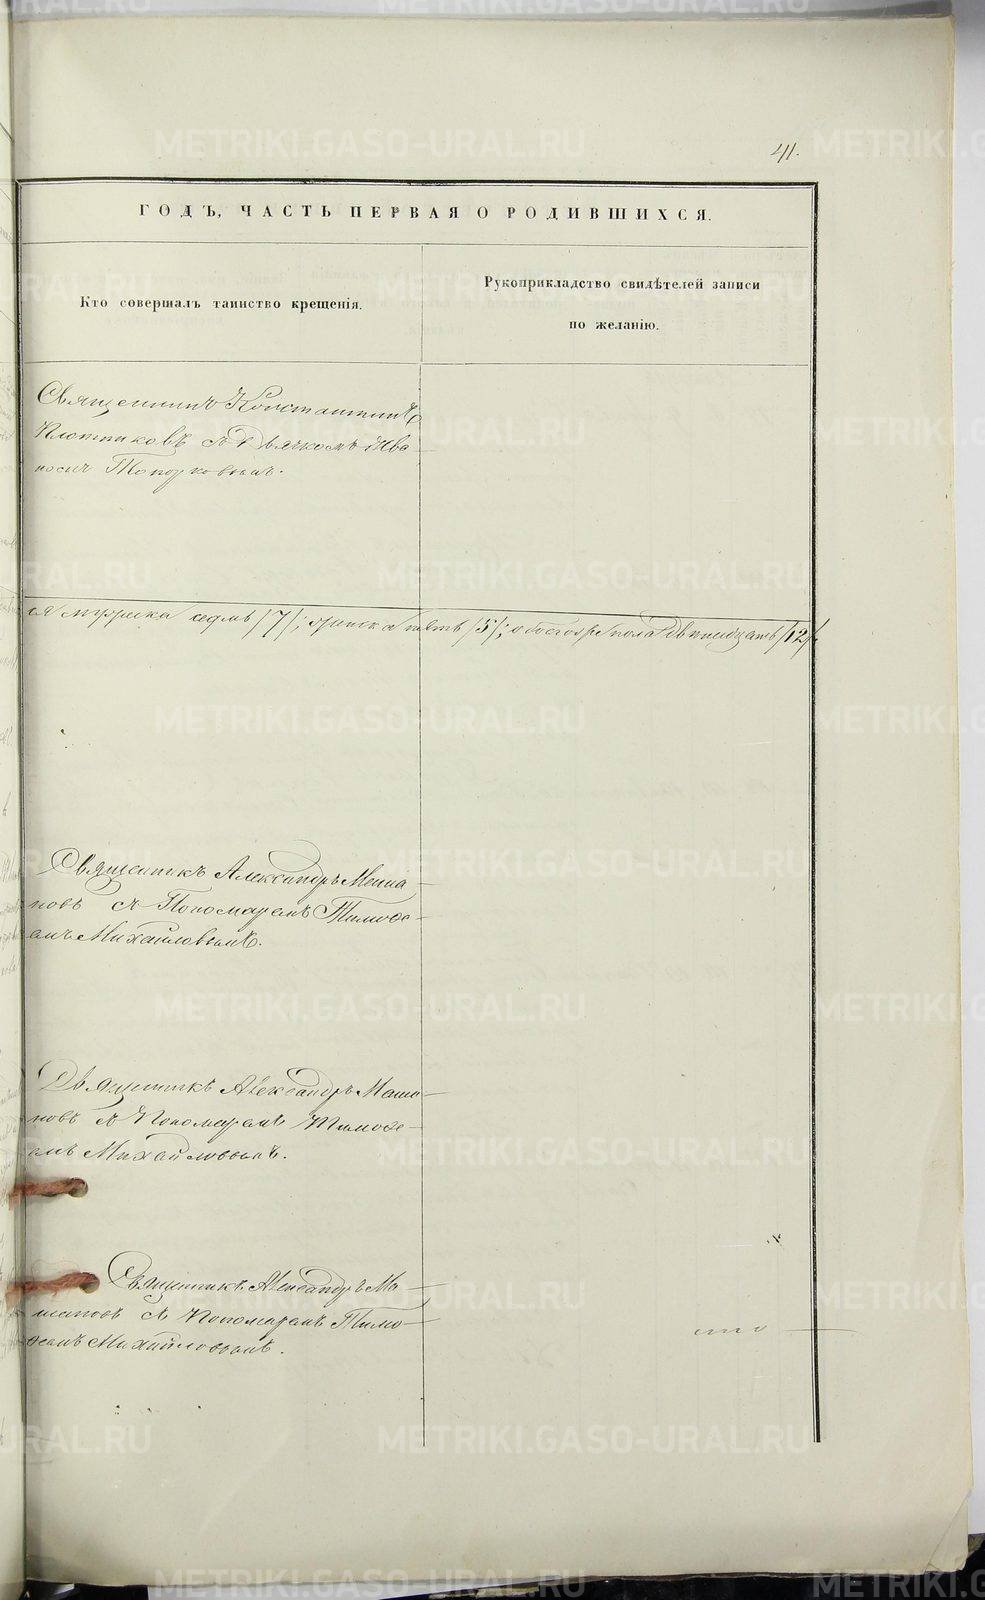 METRIKI.GASO-URAL.RU
41.
ГОДЪ, ЧАСТЬ ПЕРВАЯ О РОДИВШИХСЯ.
Кто совершалъ таинство крещенія.
Рукоприкладство свидѣтелей записи
по желанію.
Священникъ Константинъ
Плотниковъ съ Дьячкомъ Ива-
номъ Топорковымъ.
ся мужеска седмь /7/; женска пять /5/; обоего же пола двенадцать /12/.
Священикъ Александръ
съ Пономаремъ Тимоѳе-
емъ Михайловымъ.
Священникъ Александръ
съ Пономаремъ Тимоѳе-
емъ Михайловымъ.
Священникъ Александръ
съ Пономаремъ Тимо-
ѳеемъ Михайловымъ.